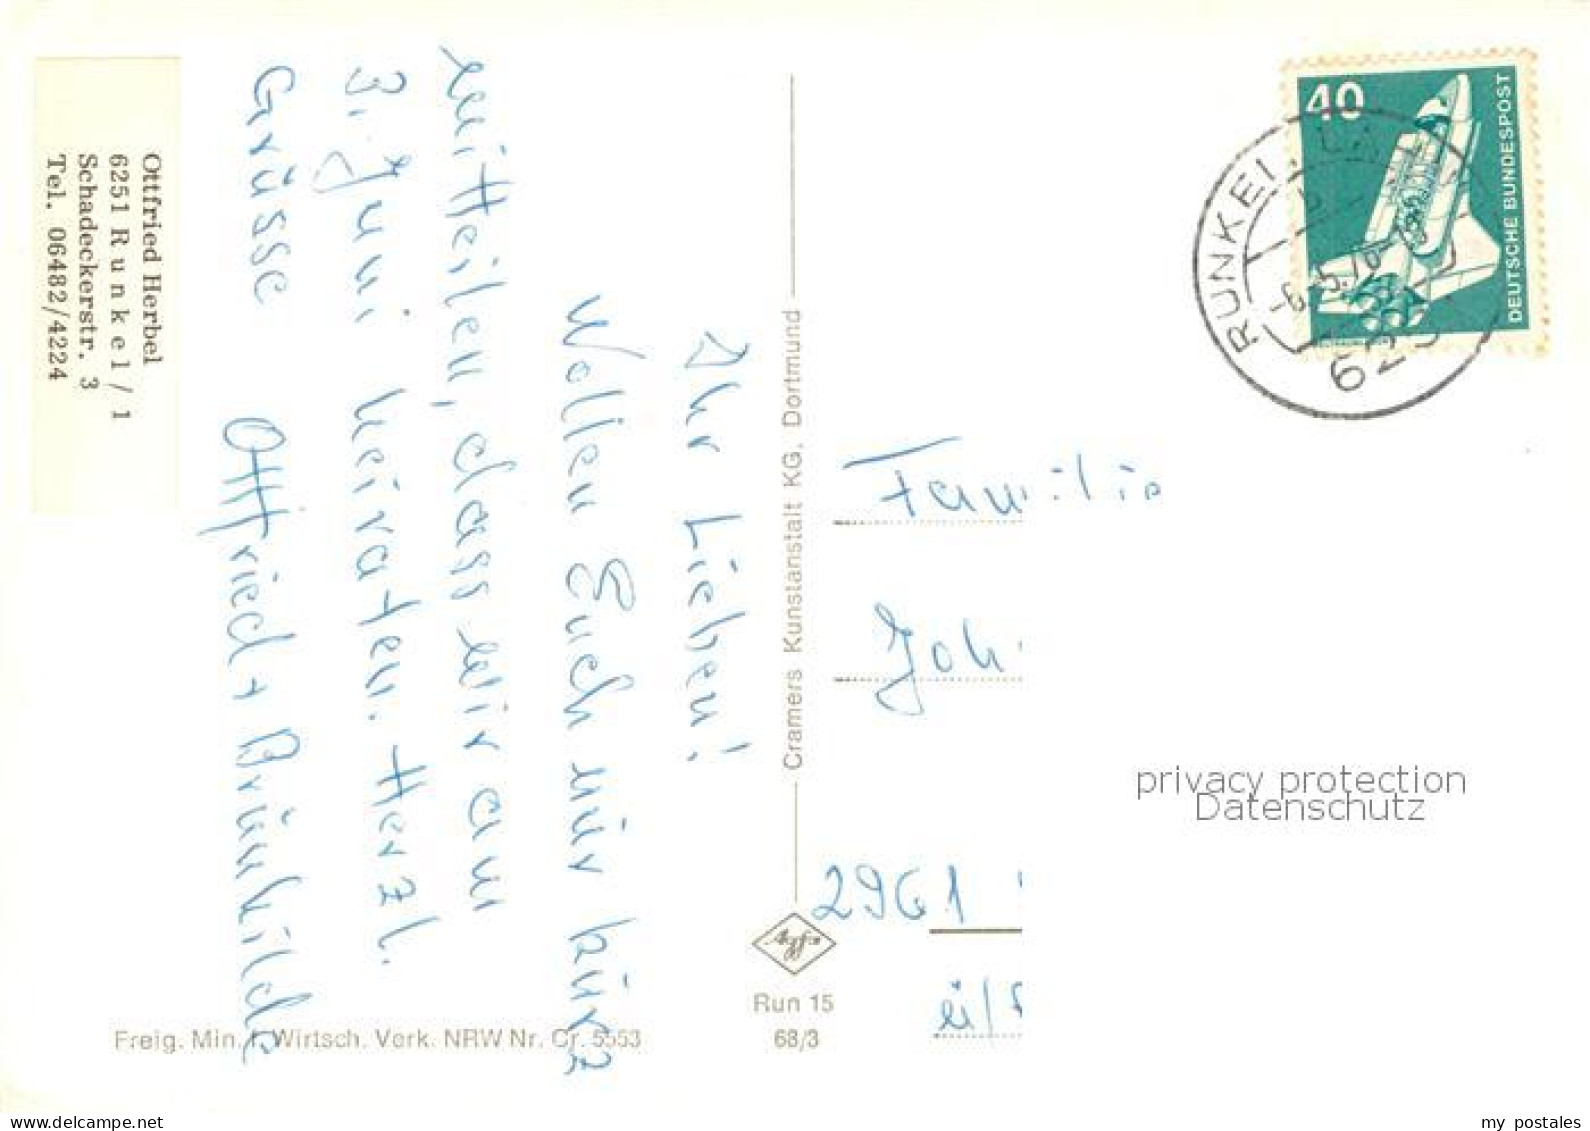 Ihr Lieben!
Wollen Euch nur kurz
mitteilen, dass wir am
3. Juni heiraten. Herzl.
Grüsse Ottfried + Brünhilde
Ottfried Herbel
6251 Runkel/1
Schadeckerstr. 3
Tel. 06482/4224
Cramers Kunstanstalt KG, Dortmund
Run 15
68/3
Freig. Min. f. Wirtsch. Verk. NRW Nr. Cr. 5553
40
DEUTSCHE BUNDESPOST
RUNKEL
Familie
Joh
2961
privacy protection
Datenschutz
my_postales